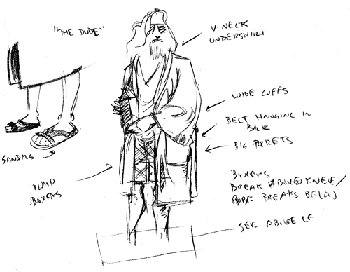 "THE DUDE"
V NECK
UNDERSHIRT
WIDE CUFFS
BELT HANGING IN
BACK
BIG POCKETS
SANDALS
PLAID
BOXERS
BOXERS
BREAK ABOVE KNEE/
ROBE BREAKS BELOW
SEE ABOVE